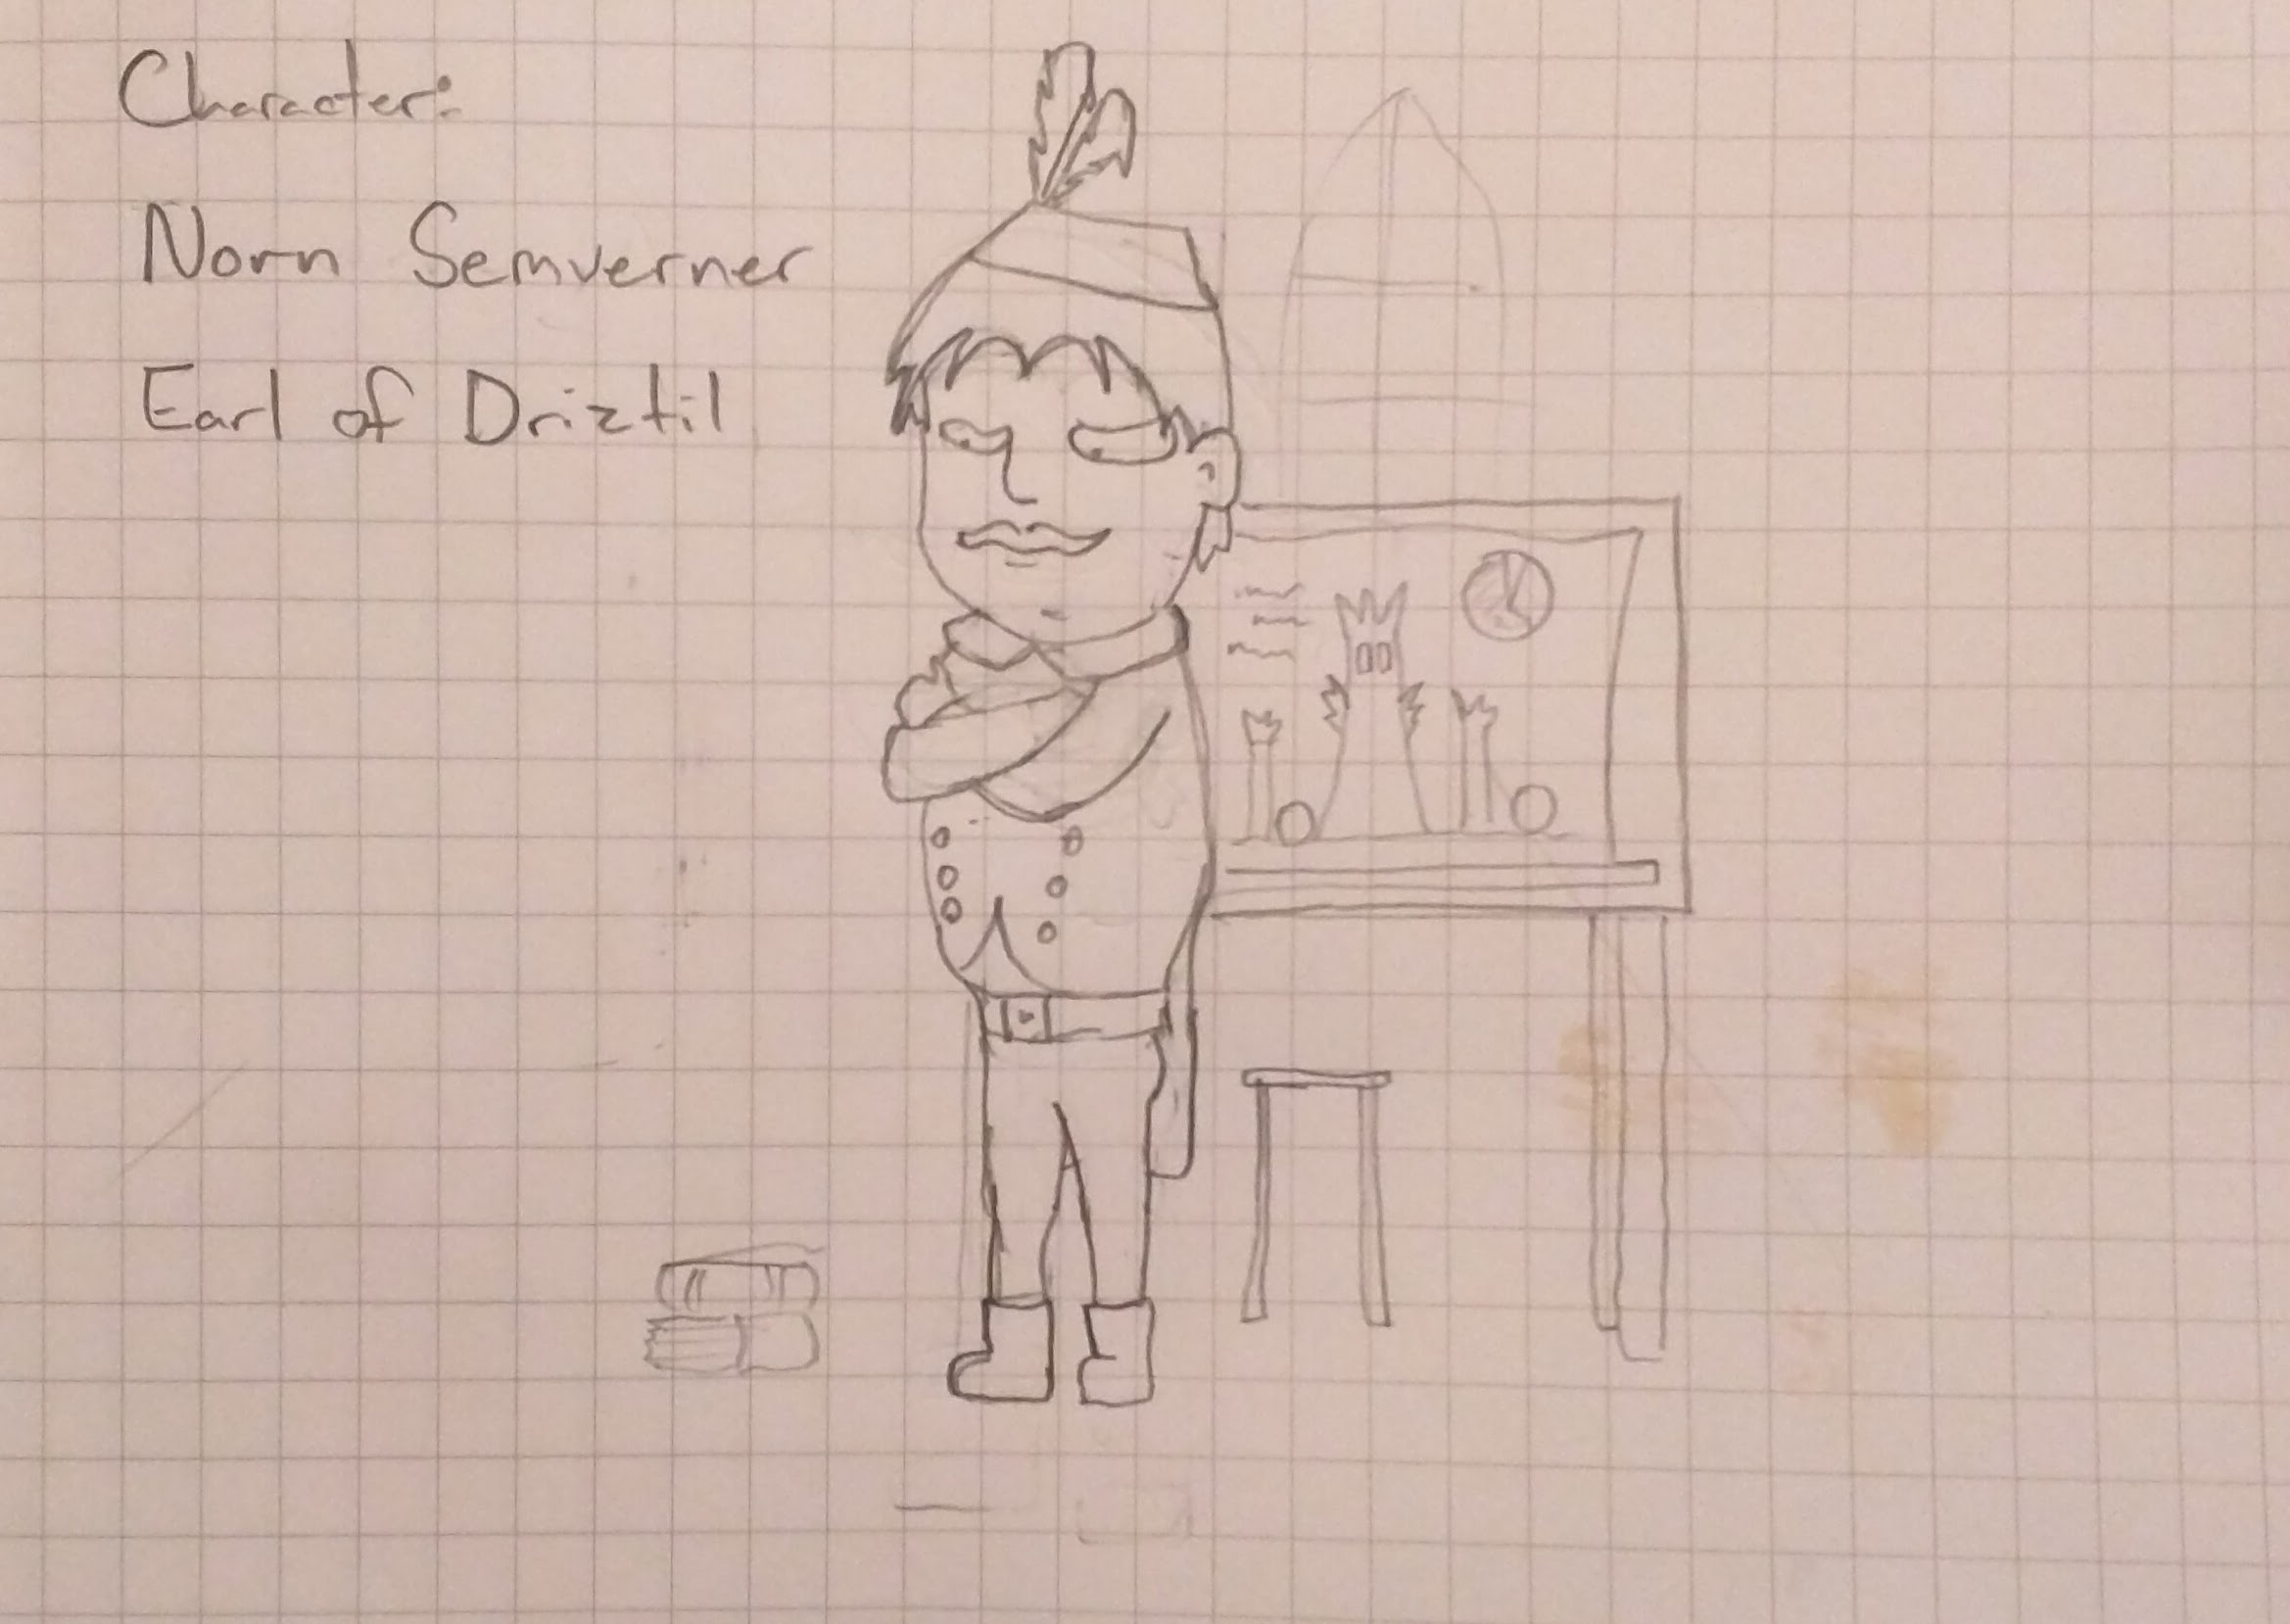 Character:
Norn Semverner
Earl of Driztil